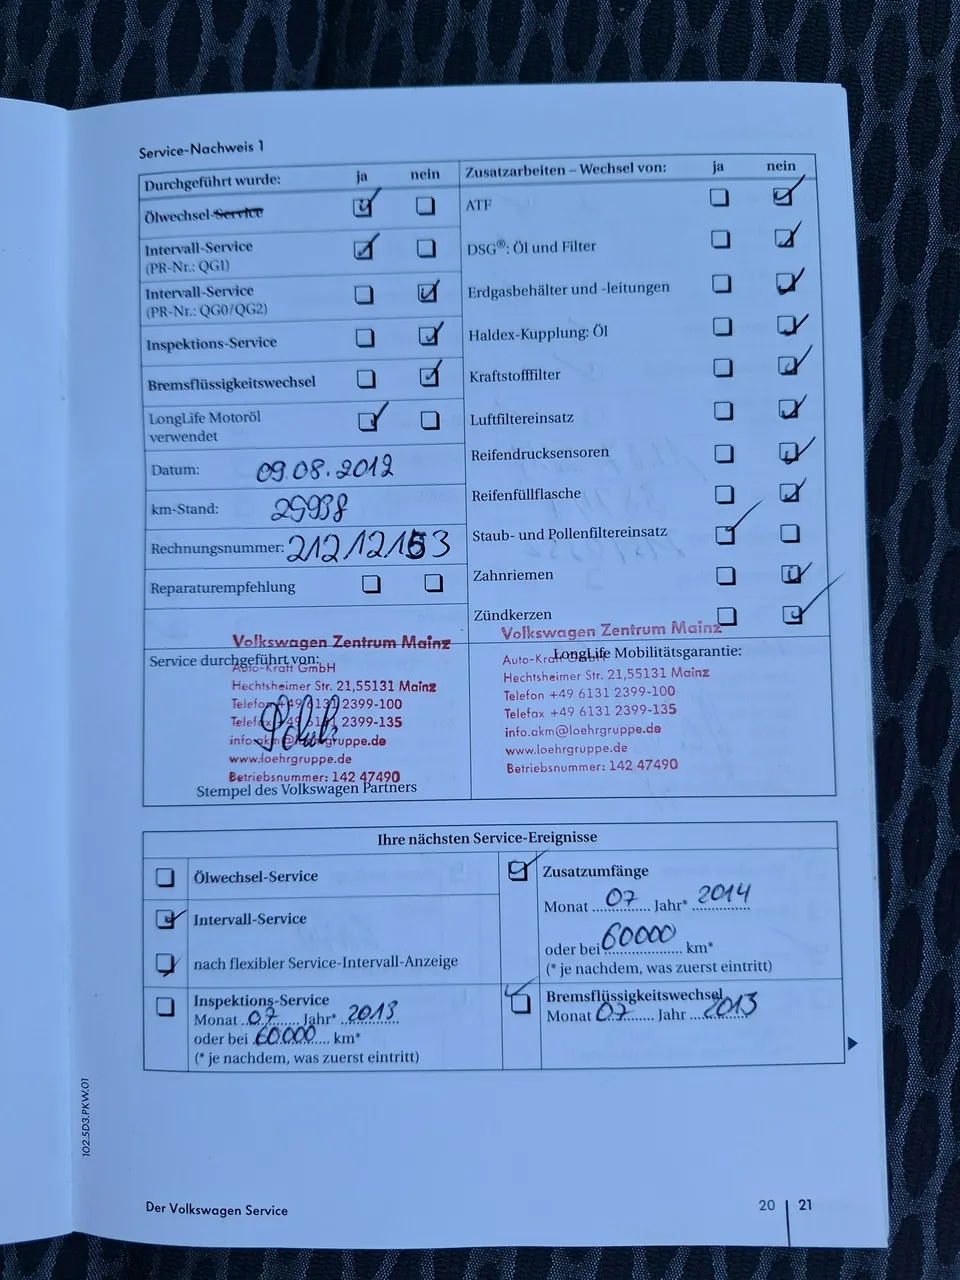 Service-Nachweis 1
Durchgeführt wurde: ja nein
Ölwechsel-Service
Intervall-Service
(PR-Nr.: QG1)
Intervall-Service
(PR-Nr.: QG0/QG2)
Inspektions-Service
Bremsflüssigkeitswechsel
LongLife Motoröl
verwendet
Datum: 09.08.2012
km-Stand: 29938
Rechnungsnummer: 21212153
Reparaturempfehlung
Zusatzarbeiten – Wechsel von: ja nein
ATF
DSG®: Öl und Filter
Erdgasbehälter und -leitungen
Haldex-Kupplung: Öl
Kraftstofffilter
Luftfiltereinsatz
Reifendrucksensoren
Reifenfüllflasche
Staub- und Pollenfiltereinsatz
Zahnriemen
Zündkerzen
Service durchgeführt von:
Volkswagen Zentrum Mainz
Auto-Kraft GmbH
Hechtsheimer Str. 21,55131 Mainz
Telefon +49 6131 2399-100
Telefax +49 6131 2399-135
info.akm@loehrgruppe.de
www.loehrgruppe.de
Betriebsnummer: 142 47490
Stempel des Volkswagen Partners
LongLife Mobilitätsgarantie:
Volkswagen Zentrum Mainz
Auto-Kraft GmbH
Hechtsheimer Str. 21,55131 Mainz
Telefon +49 6131 2399-100
Telefax +49 6131 2399-135
info.akm@loehrgruppe.de
www.loehrgruppe.de
Betriebsnummer: 142 47490
Ihre nächsten Service-Ereignisse
Ölwechsel-Service
Intervall-Service
nach flexibler Service-Intervall-Anzeige
Inspektions-Service
Monat 07 Jahr* 2013
oder bei 60000 km*
(* je nachdem, was zuerst eintritt)
Zusatzumfänge
Monat 07 Jahr* 2014
oder bei 60000 km*
(* je nachdem, was zuerst eintritt)
Bremsflüssigkeitswechsel
Monat 07 Jahr 2013
102.5D3.PKW.01
Der Volkswagen Service
20 21